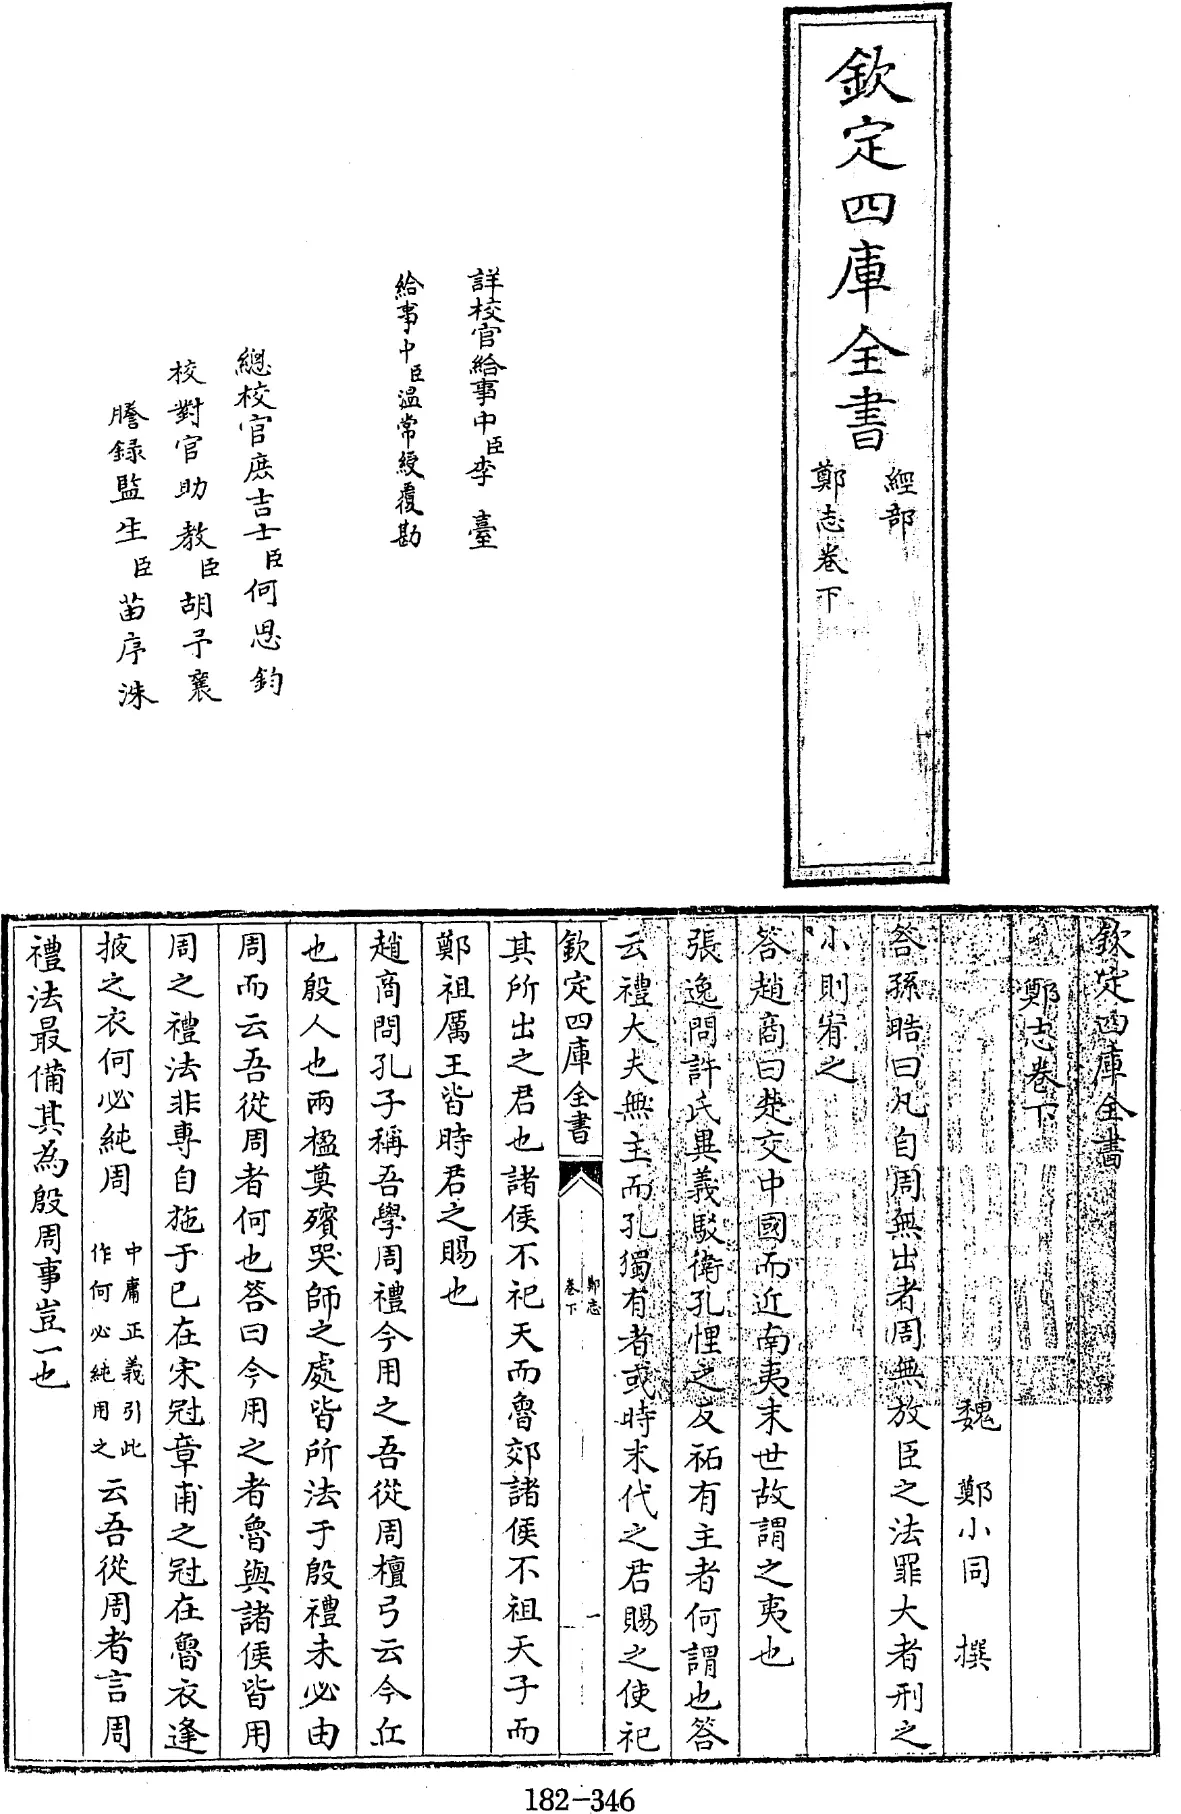 欽定四庫全書
經部
鄭志卷下
詳校官給事中臣李臺
給事中臣溫常綬覆勘
總校官庶吉士臣何思鈞
校對官助教臣胡予襄
謄錄監生臣苗序洙
欽定四庫全書
鄭志卷下
魏 鄭小同 撰
答孫晧曰凡自周無出者周無放臣之法罪大者刑之
小則宥之
答趙商曰楚交中國而近南夷末世故謂之夷也
張逸問許氏異義駁衛孔悝之反祏有主者何謂也答
云禮大夫無主而孔獨有者或時末代之君賜之使祀
欽定四庫全書
鄭志
卷下
一
其所出之君也諸侯不祀天而魯郊諸侯不祖天子而
鄭祖厲王皆時君之賜也
趙商問孔子稱吾學周禮今用之吾從周檀弓云今丘
也殷人也兩楹奠殯哭師之處皆所法于殷禮未必由
周而云吾從周者何也答曰今用之者魯與諸侯皆用
周之禮法非專自施于已在宋冠章甫之冠在魯衣逢
掖之衣何必純周 中庸正義引此作何必純用之 云吾從周者言周
禮法最備其為殷周事豈一也
182-346